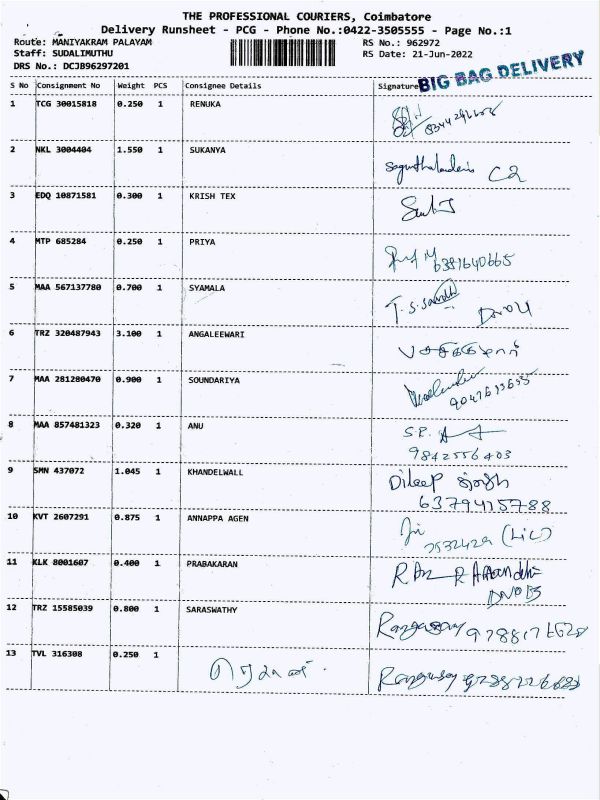 THE PROFESSIONAL COURIERS, Coimbatore
Delivery Runsheet - PCG - Phone No.:0422-3505555 - Page No.:1
Route: MANIYAKRAM PALAYAM RS No.: 962972
Staff: SUDALIMUTHU RS Date: 21-Jun-2022
DRS No.: DCJB96297201
BIG BAG DELIVERY
S No Consignment No Weight PCS Consignee Details Signature
1 TCG 30015818 0.250 1 RENUKA
2 NKL 3004404 1.550 1 SUKANYA C2
3 EDQ 10871581 0.300 1 KRISH TEX
4 MTP 685284 0.250 1 PRIYA
6381640665
5 MAA 567137780 0.700 1 SYAMALA T.S.
6 TRZ 320487943 3.100 1 ANGALEEWARI
7 MAA 281280470 0.900 1 SOUNDARIYA
8 MAA 857481323 0.320 1 ANU S.R.
9842556403
9 SMN 437072 1.045 1 KHANDELWALL Dileep
6379415788
10 KVT 2607291 0.875 1 ANNAPPA AGEN
(LIC)
11 KLK 8001607 0.400 1 PRABAKARAN
12 TRZ 15585039 0.800 1 SARASWATHY Rangasamy
13 TVL 316308 0.250 1 Rangasamy